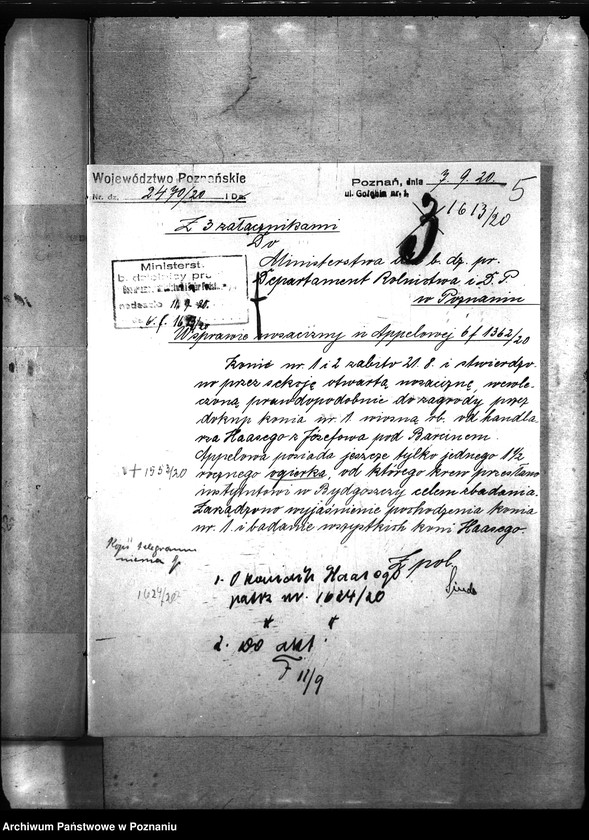 Województwo Poznańskie
Nr. dz. 2470/20 I Da.
Poznań, dnia 3. 9. 20.
ul. Gołębia nr. 1.
5
3
1613/20
Z 3 załącznikami
Do
Ministerstwa b. dz. pr.
Departament Rolnictwa i D. P.
w Poznaniu
Ministerst.
b. dzielnicy pru
nadeszło 11. 9. 20.
W sprawie nosacizny u Appelowej 6 f 1362/20
Konie nr. 1 i 2 zabito 21. 8. i stwierdzo-
no przez sekcję otwartą nosaciznę, wewle-
czoną prawdopodobnie do zagrody przez
dokup konia nr. 1 wiosną rb. od handla
rza Haasego z Józefowa pod Barcinem.
Appelowa posiada jeszcze tylko jednego 1½
rocznego ogierka, od którego krew przesłano
instytutowi w Bydgoszczy celem zbadania.
Zarządzono wyjaśnienie pochodzenia konia
nr. 1. i badanie wszystkich koni Haasego.
+ 1553/20
Kopii telegramu
niema
1624/20
Z pol.
1. O koniach Haasego
patrz nr. 1624/20
2. Do akt.
F 11/9
Archiwum Państwowe w Poznaniu